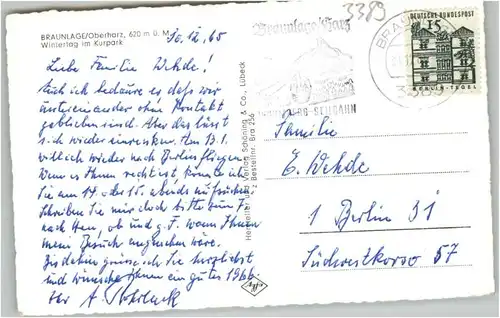 BRAUNLAGE/Oberharz, 620 m ü. M.
Wintertag im Kurpark
30.12.65
Liebe Familie Wehde!
Auch ich bedaure es daß wir
auseinander ohne Kontakt
geblieben sind. Aber das lässt
sich wieder einrenken. Am 13.1.
will ich wieder nach Berlin fliegen.
Wenn es Ihnen recht ist, könnte ich
Sie am 14. oder 15. abends aufsuchen.
Schreiben Sie mir doch bitte zum
nach Hau, ob und g.F. wann Ihnen
mein Besuch angenehm wäre.
Bis dahin grüsse ich Sie herzlichst
und wünsche Ihnen ein gutes 1966.
Ihr A.
Hersteller und Verlag Schöning & Co., Lübeck
Bestellnr. Bra 256
3389
Braunlage/Harz
SEILBAHN
BRAU
3389
DEUTSCHE BUNDESPOST
15
BERLIN-TEGEL
Familie
E. Wehde
1 Berlin 31
Südwestkorso 57